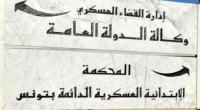 إدارة القضاء العسكري
وكالة الدولة العامة
المحكمة
الإبتدائية العسكرية الدائمة بتونس